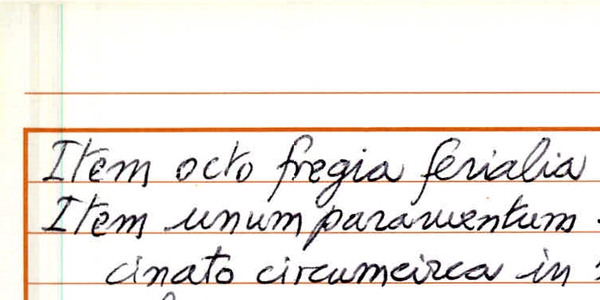 Item octo fregia ferialia
Item unum paramentum
cinato circumcirca in